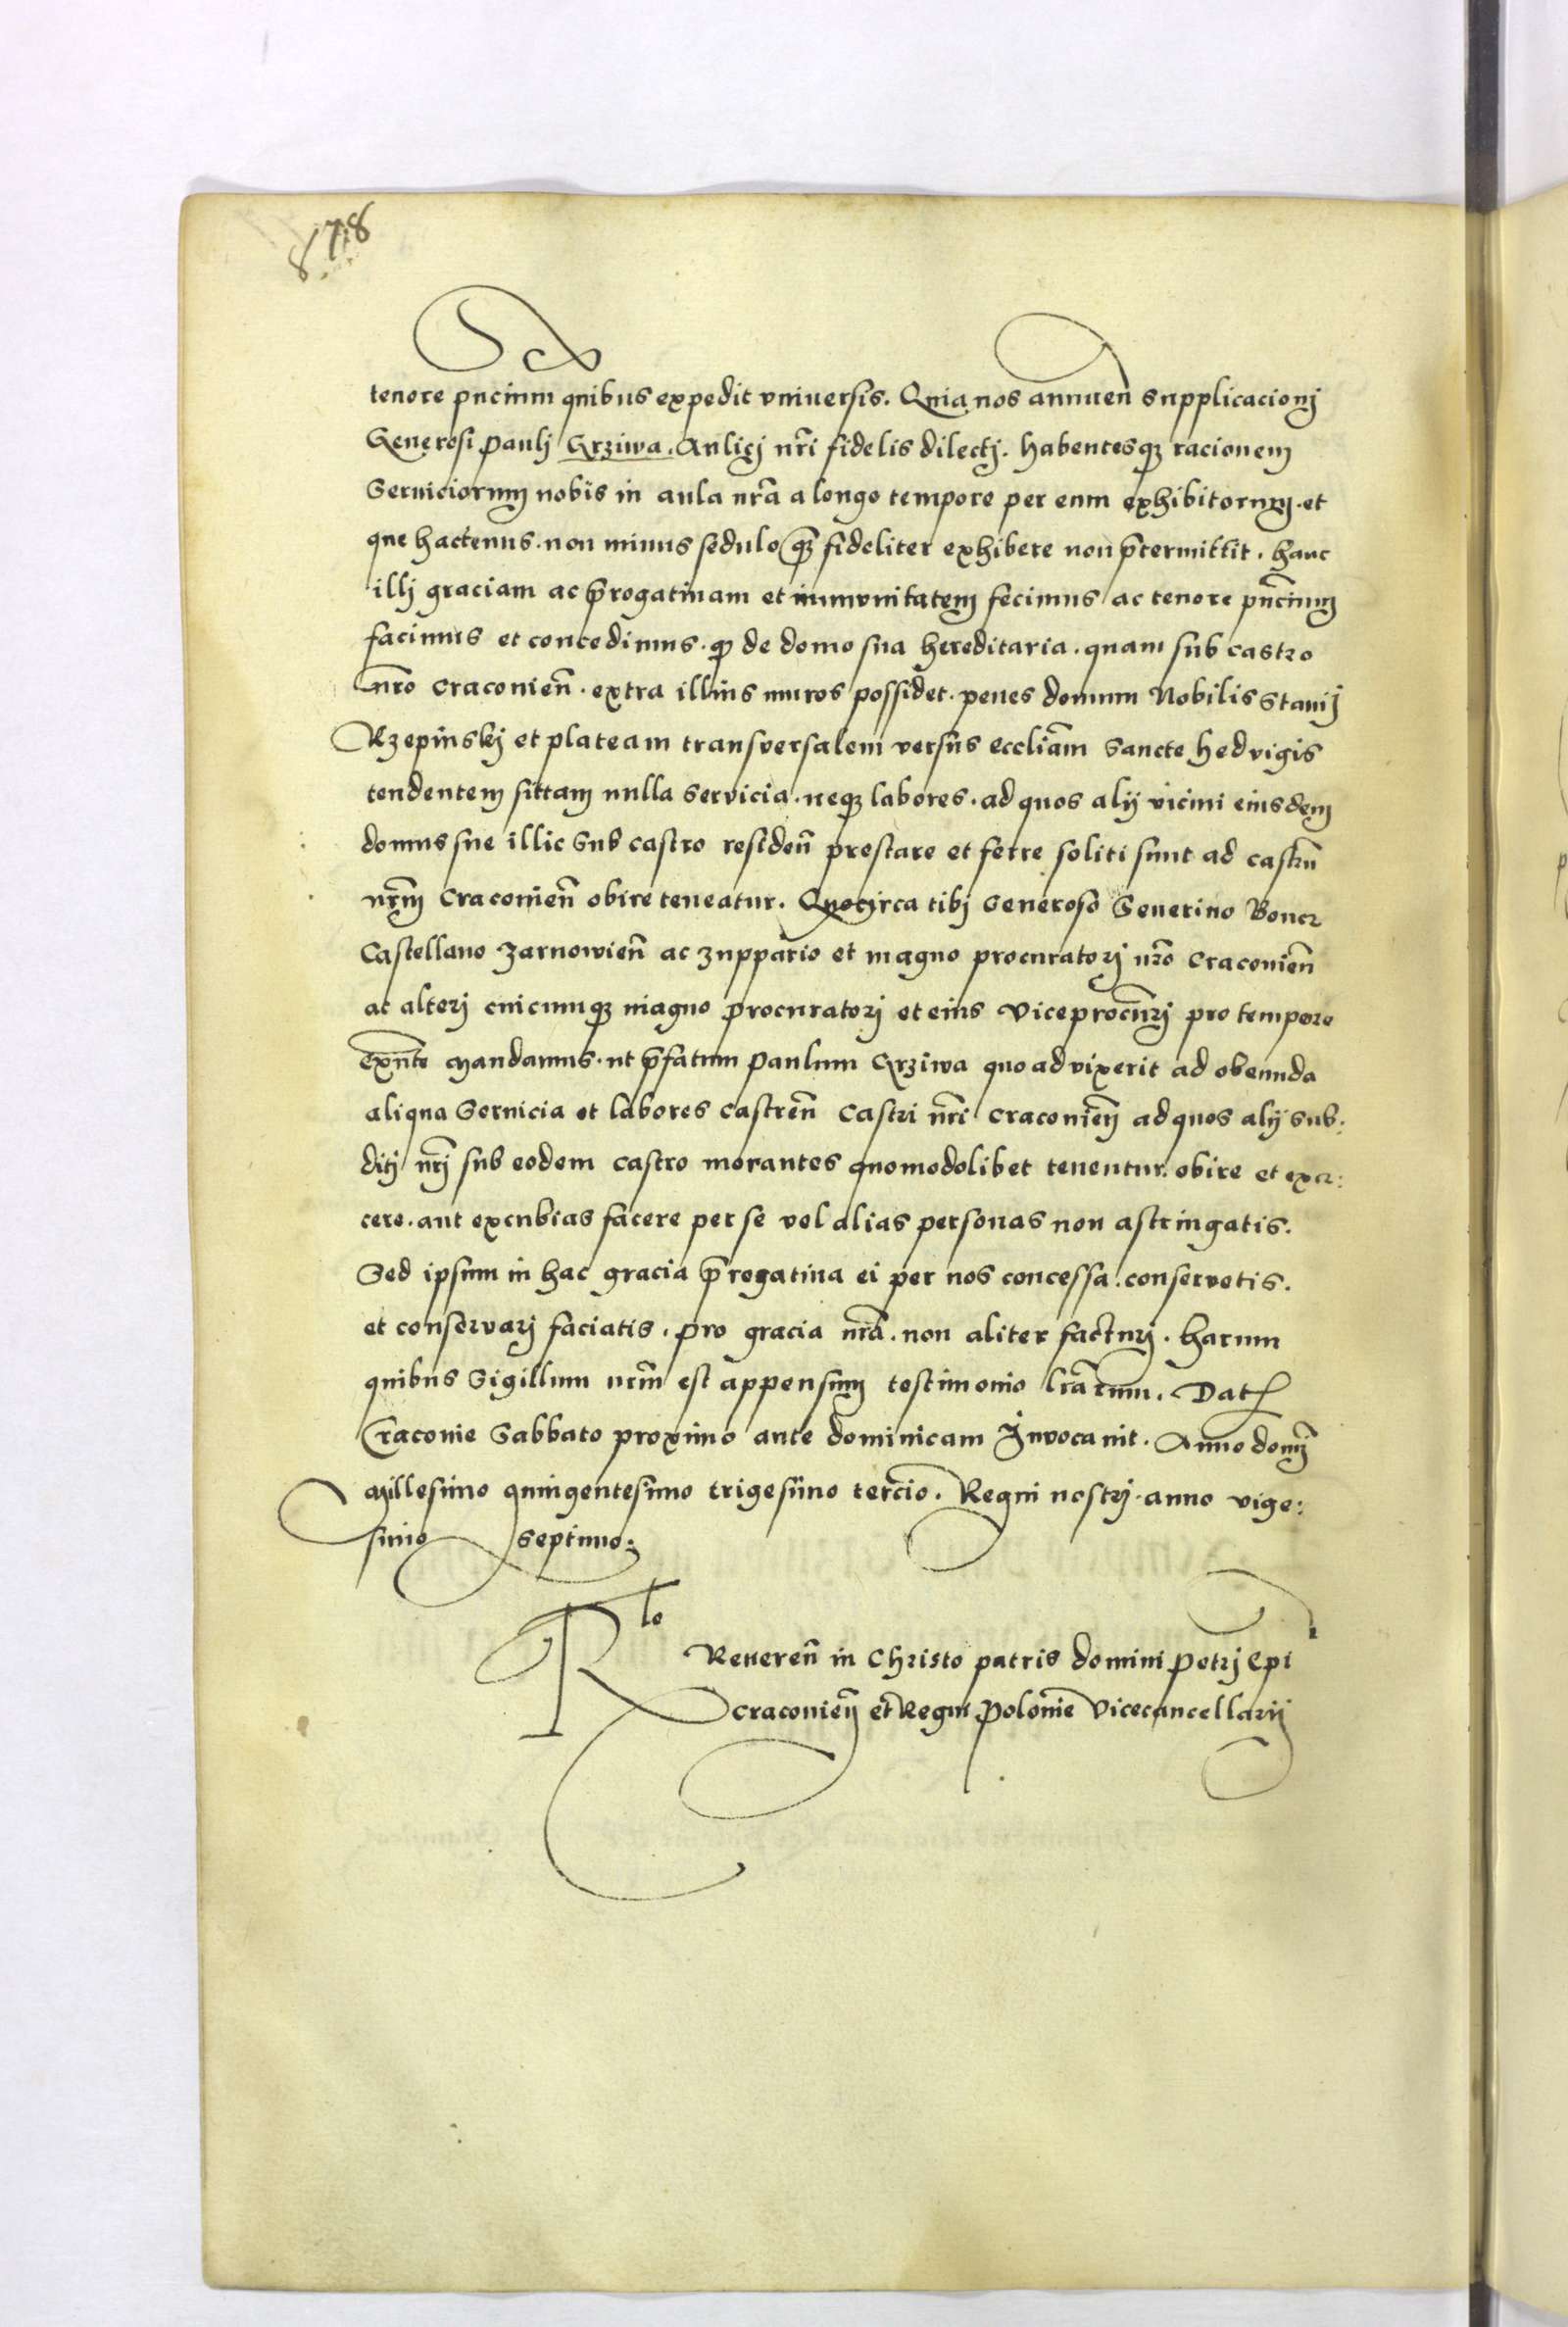 878
tenore pñcium quibus expedit vniuersis. Quia nos annueñ supplicacionj
Generosi Paulj Grziwa. Aulicj nr̃i fidelis dilectj. habentesq3 racionem
Seruiciorum nobis in aula nr̃a a longo tempore per eum exhibitorum. et
que hactenus. non minus sedulo q3 fideliter exhibere non p̃termittit. hanc
illj graciam ac p̃rogatiuam et immunitatem fecimus ac tenore pñcium
facimus et concedimus. q3 de domo sua hereditaria. quam sub castro
nr̃o Craconieñ. extra illius muros possidet. penes domum Nobilis Stanij
Rzepinskj et plateam transversalem versus eccliam̃ Sancte Hedvigis
tendentem sittam nulla Servicia. neq3 labores. ad quos alij vicini eiusdem
domus sue illic Sub castro resideñ prestare et ferre soliti sunt ad castrũ
nr̃m Craconieñ obire teneatur. Quocirca tibj Generoso Seuerino Boner
Castellano Zarnowieñ ac zuppario et magno procuratorj nr̃o Craconieñ
ac alterj cuicumq3 magno procuratorj et eius viceprocur̃j pro tempore
exñte Mandamus. ut p̃fatum Paulum Grziwa quoad vixerit ad obeunda
aliqua Seruicia et labores castreñ Castri nr̃i Craconieñ ad quos alij Sub:
ditj nr̃j sub eodem castro morantes quomodolibet tenentur. obire et exer:
cere. aut excubias facere per se vel alias personas non astringatis.
Sed ipsum in hac gracia p̃rogatiua ei per nos concessa. conservetis.
et conservarj faciatis. pro gracia nr̃a. non aliter facturj. Harum
quibus Sigillum nr̃m est appensum testimonio lr̃arum. Dat
Craconie Sabbato proximo ante dominicam Invocauit. Anno domj̃
Millesimo quingentesimo trigesimo tercio. Regni nostrj. anno vige:
simo septimo:
Rlo
Revereñ in Christo patris domini Petrj Epi
Craconieñ et Regni Polonie Vicecancellarij